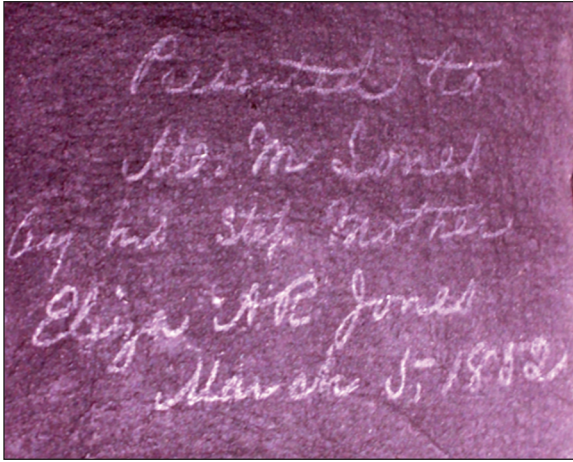 Presented to
M. Jones
by his Step Mother
Eliza A R Jones
March 5, 1882